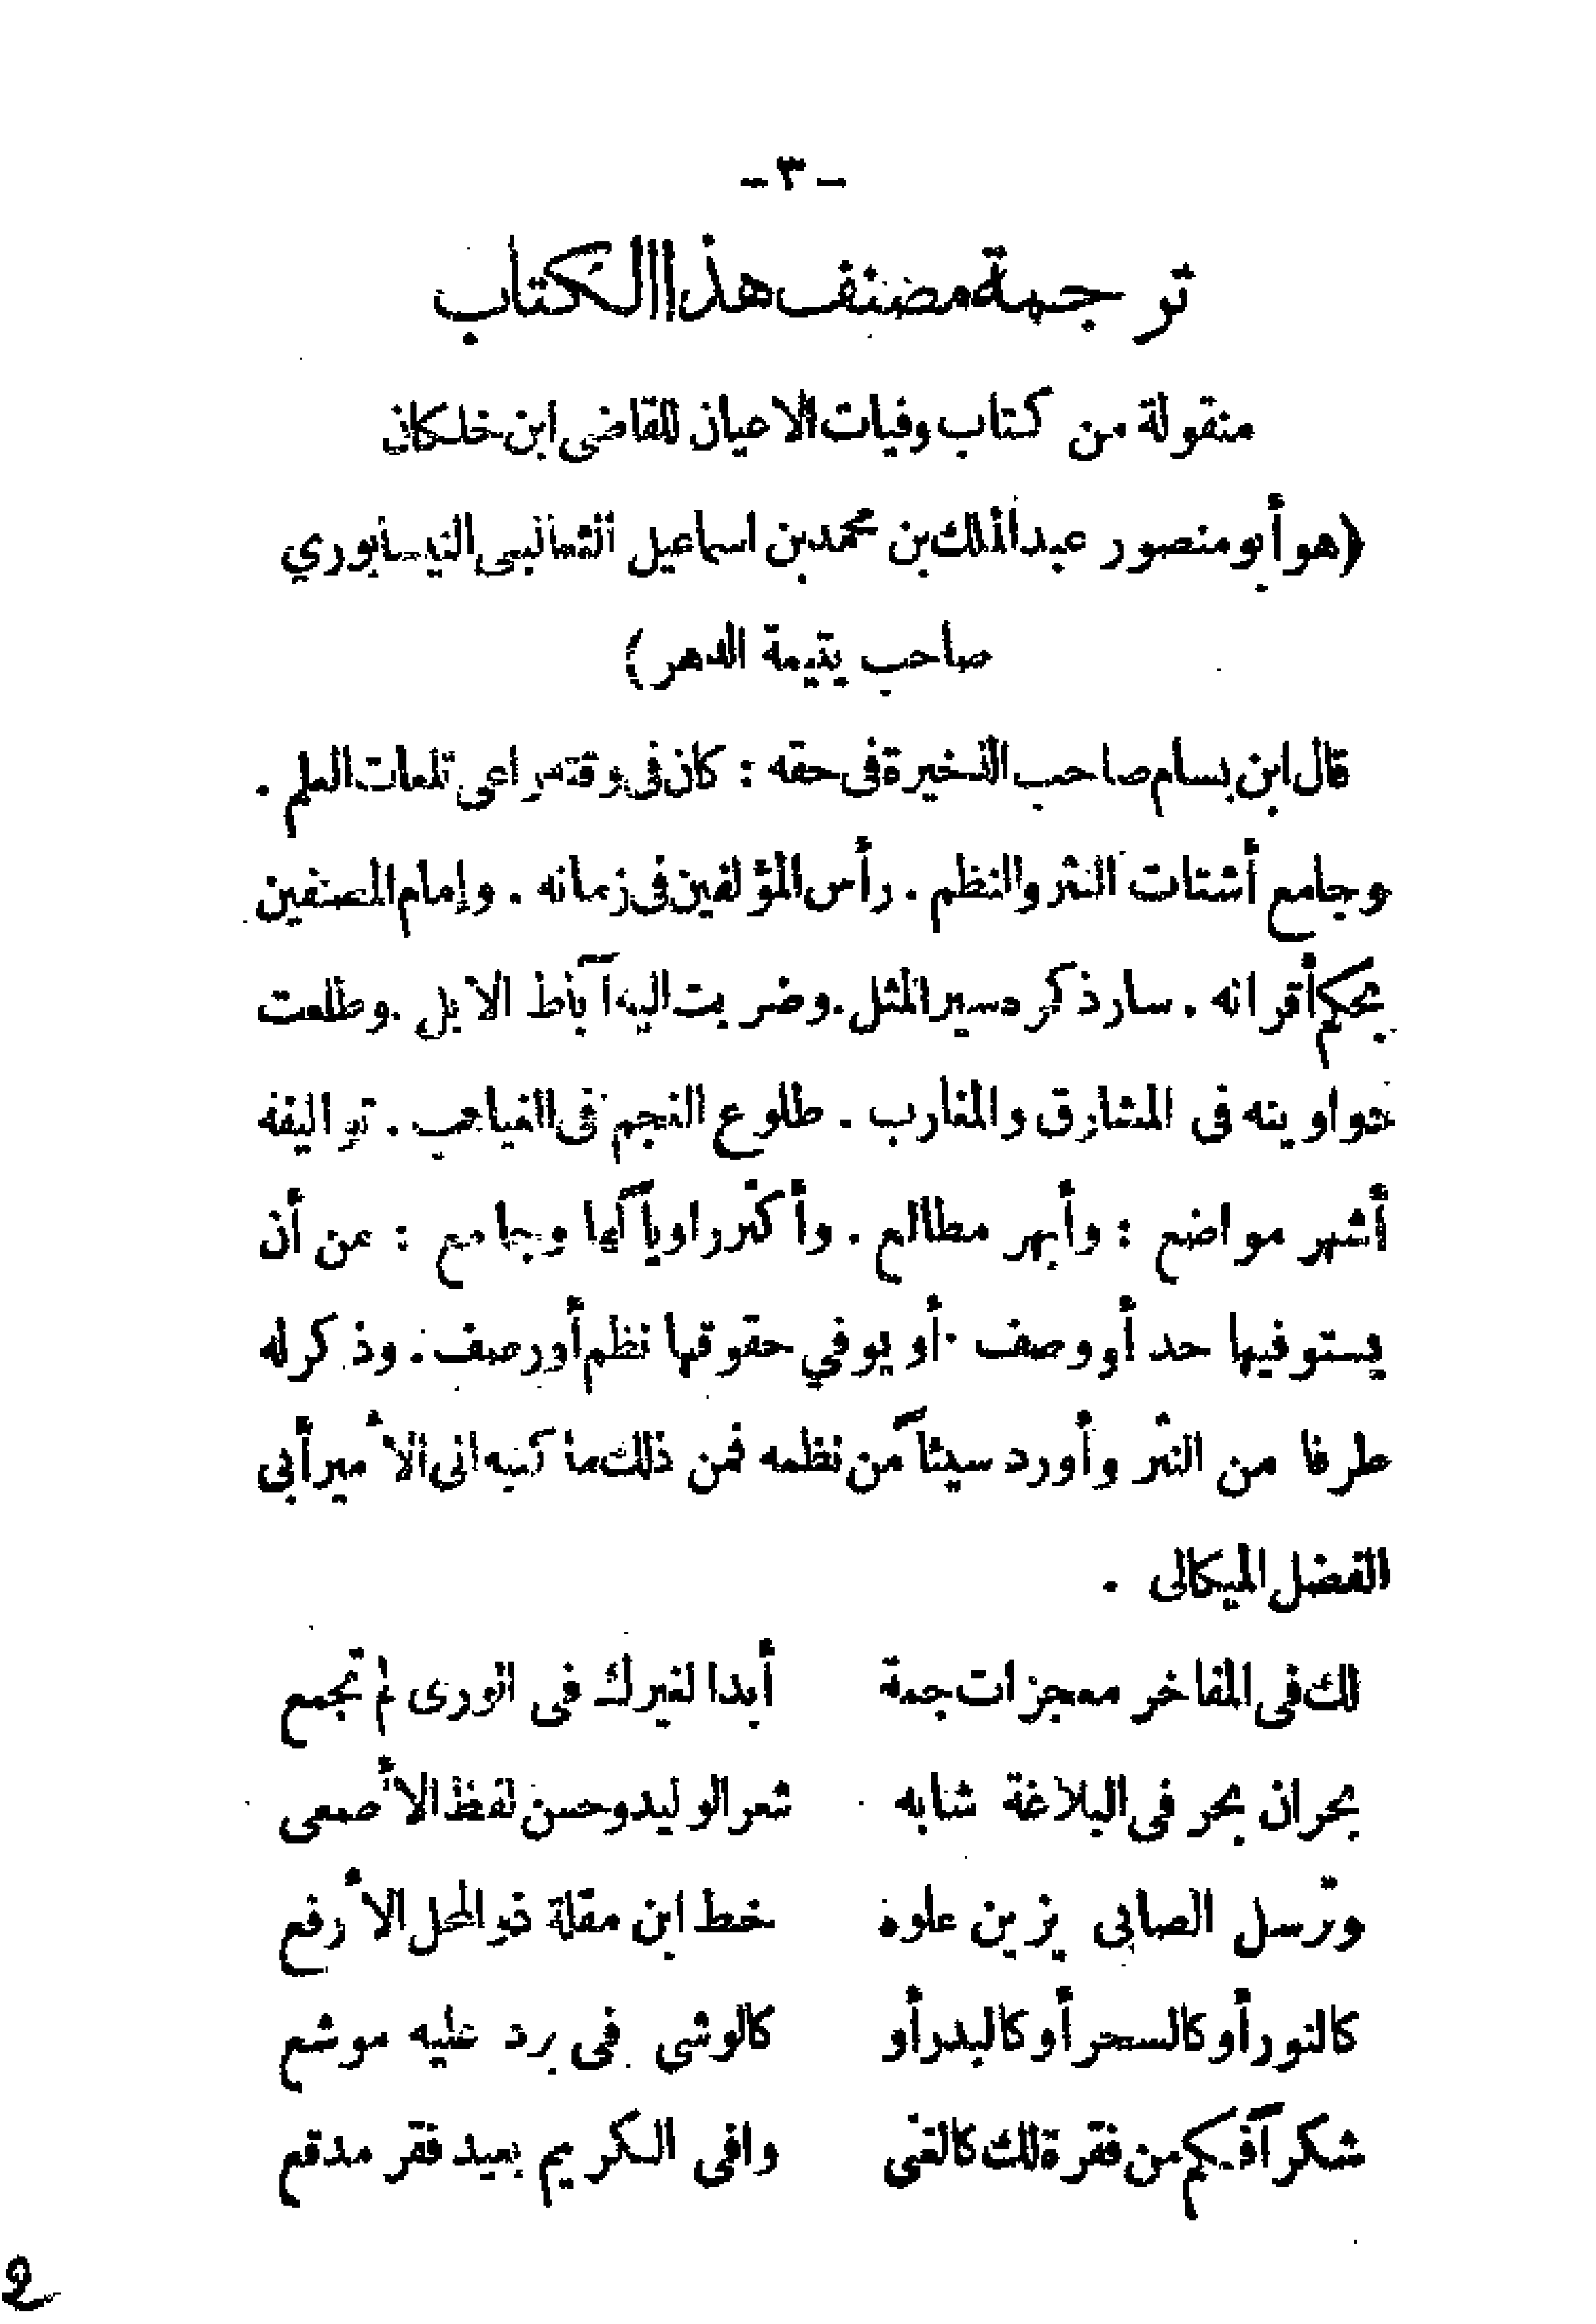 -٣-
ترجمة مصنف هذا الكتاب
منقولة من كتاب وفيات الاعيان للقاضي ابن خلكان
(هو أبو منصور عبد الملك بن محمد بن اسماعيل الثعالبي النيسابوري
صاحب يتيمة الدهر)
قال ابن بسام صاحب الذخيرة في حقه : كان في وقته راعى تلعات العلم .
وجامع أشتات النثر والنظم . رأس المؤلفين في زمانه . وإمام المصنفين
بحكم أقرانه . سار ذكره سير المثل . وضربت اليه آباط الابل . وطلعت
دواوينه فى المشارق والمغارب . طلوع النجم فى الغياهب . تواليفه
أشهر مواضع : وأبهر مطالع . وأكثر راوياً لها وجامع : من أن
يستوفيها حد أو وصف . أو يوفي حقوقها نظم أو رصف . وذكر له
طرفا من النثر وأورد سيئاً من نظمه فمن ذلك ما كتبه الى الأمير أبى
الفضل الميكالى .
لك فى المفاخر معجزات جمة أبدا لغيرك فى الورى لم تجمع
بحران بحر فى البلاغة شابه شعر الوليد وحسن لفظ الأصمعى
وترسل الصابى يزين علوه خط ابن مقلة ذو المحل الأرفع
كالنور أو كالسحر أو كالبدر أو كالوشي فى برد عليه موشع
شكراً فكم من فقرة لك كالغنى وافى الكريم بعيد فقر مدقع
2